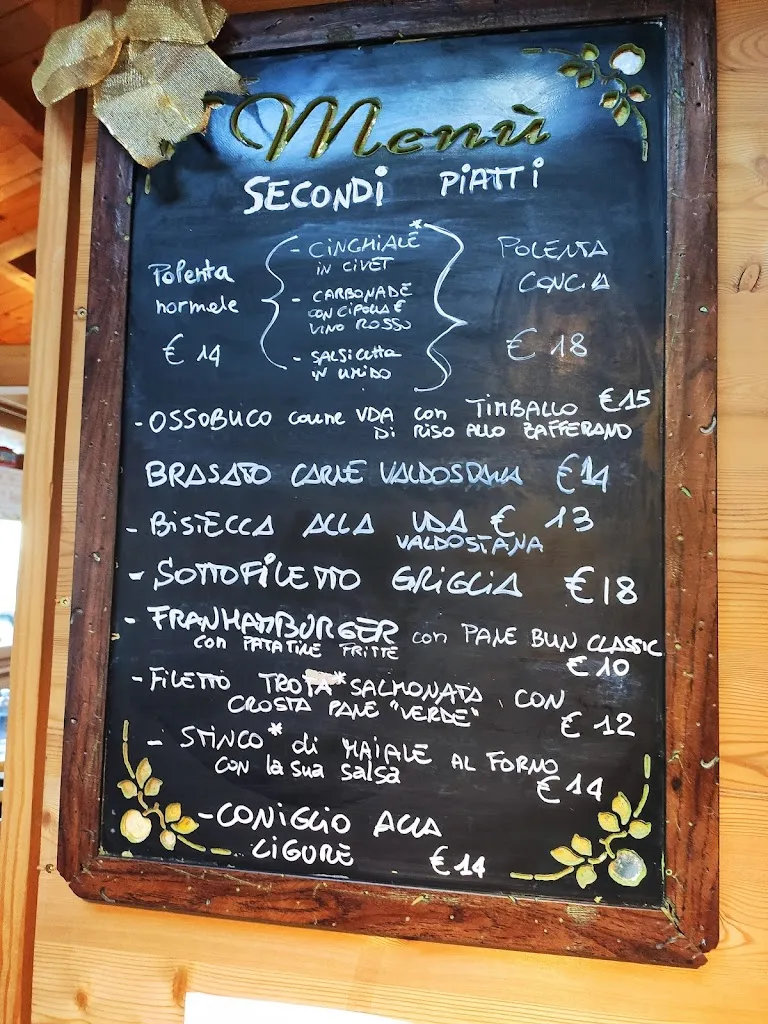 Menù
SECONDI PIATTI
Polenta
normale
€ 14
- CINGHIALE*
IN CIVET
- CARBONADE
CON CIPOLLA E
VINO ROSSO
- SALSICETTA
IN UMIDO
POLENTA
CONCIA
€ 18
- OSSOBUCO carne VDA con TIMBALLO €15
DI RISO ALLO ZAFFERANO
BRASATO CARNE VALDOSTANA €14
- BISTECCA ALLA VDA € 13
VALDOSTANA
- SOTTOFILETTO GRIGLIA €18
- FRANHAMBURGER con PANE BUN CLASSIC
con PATATINE FRITTE
€ 10
- FILETTO TROTA* SALMONATA CON
CROSTA PANE "VERDE"
€ 12
- STINCO* di MAIALE AL FORNO
CON la sua salsa
€ 14
- CONIGLIO ALLA
LIGURE € 14